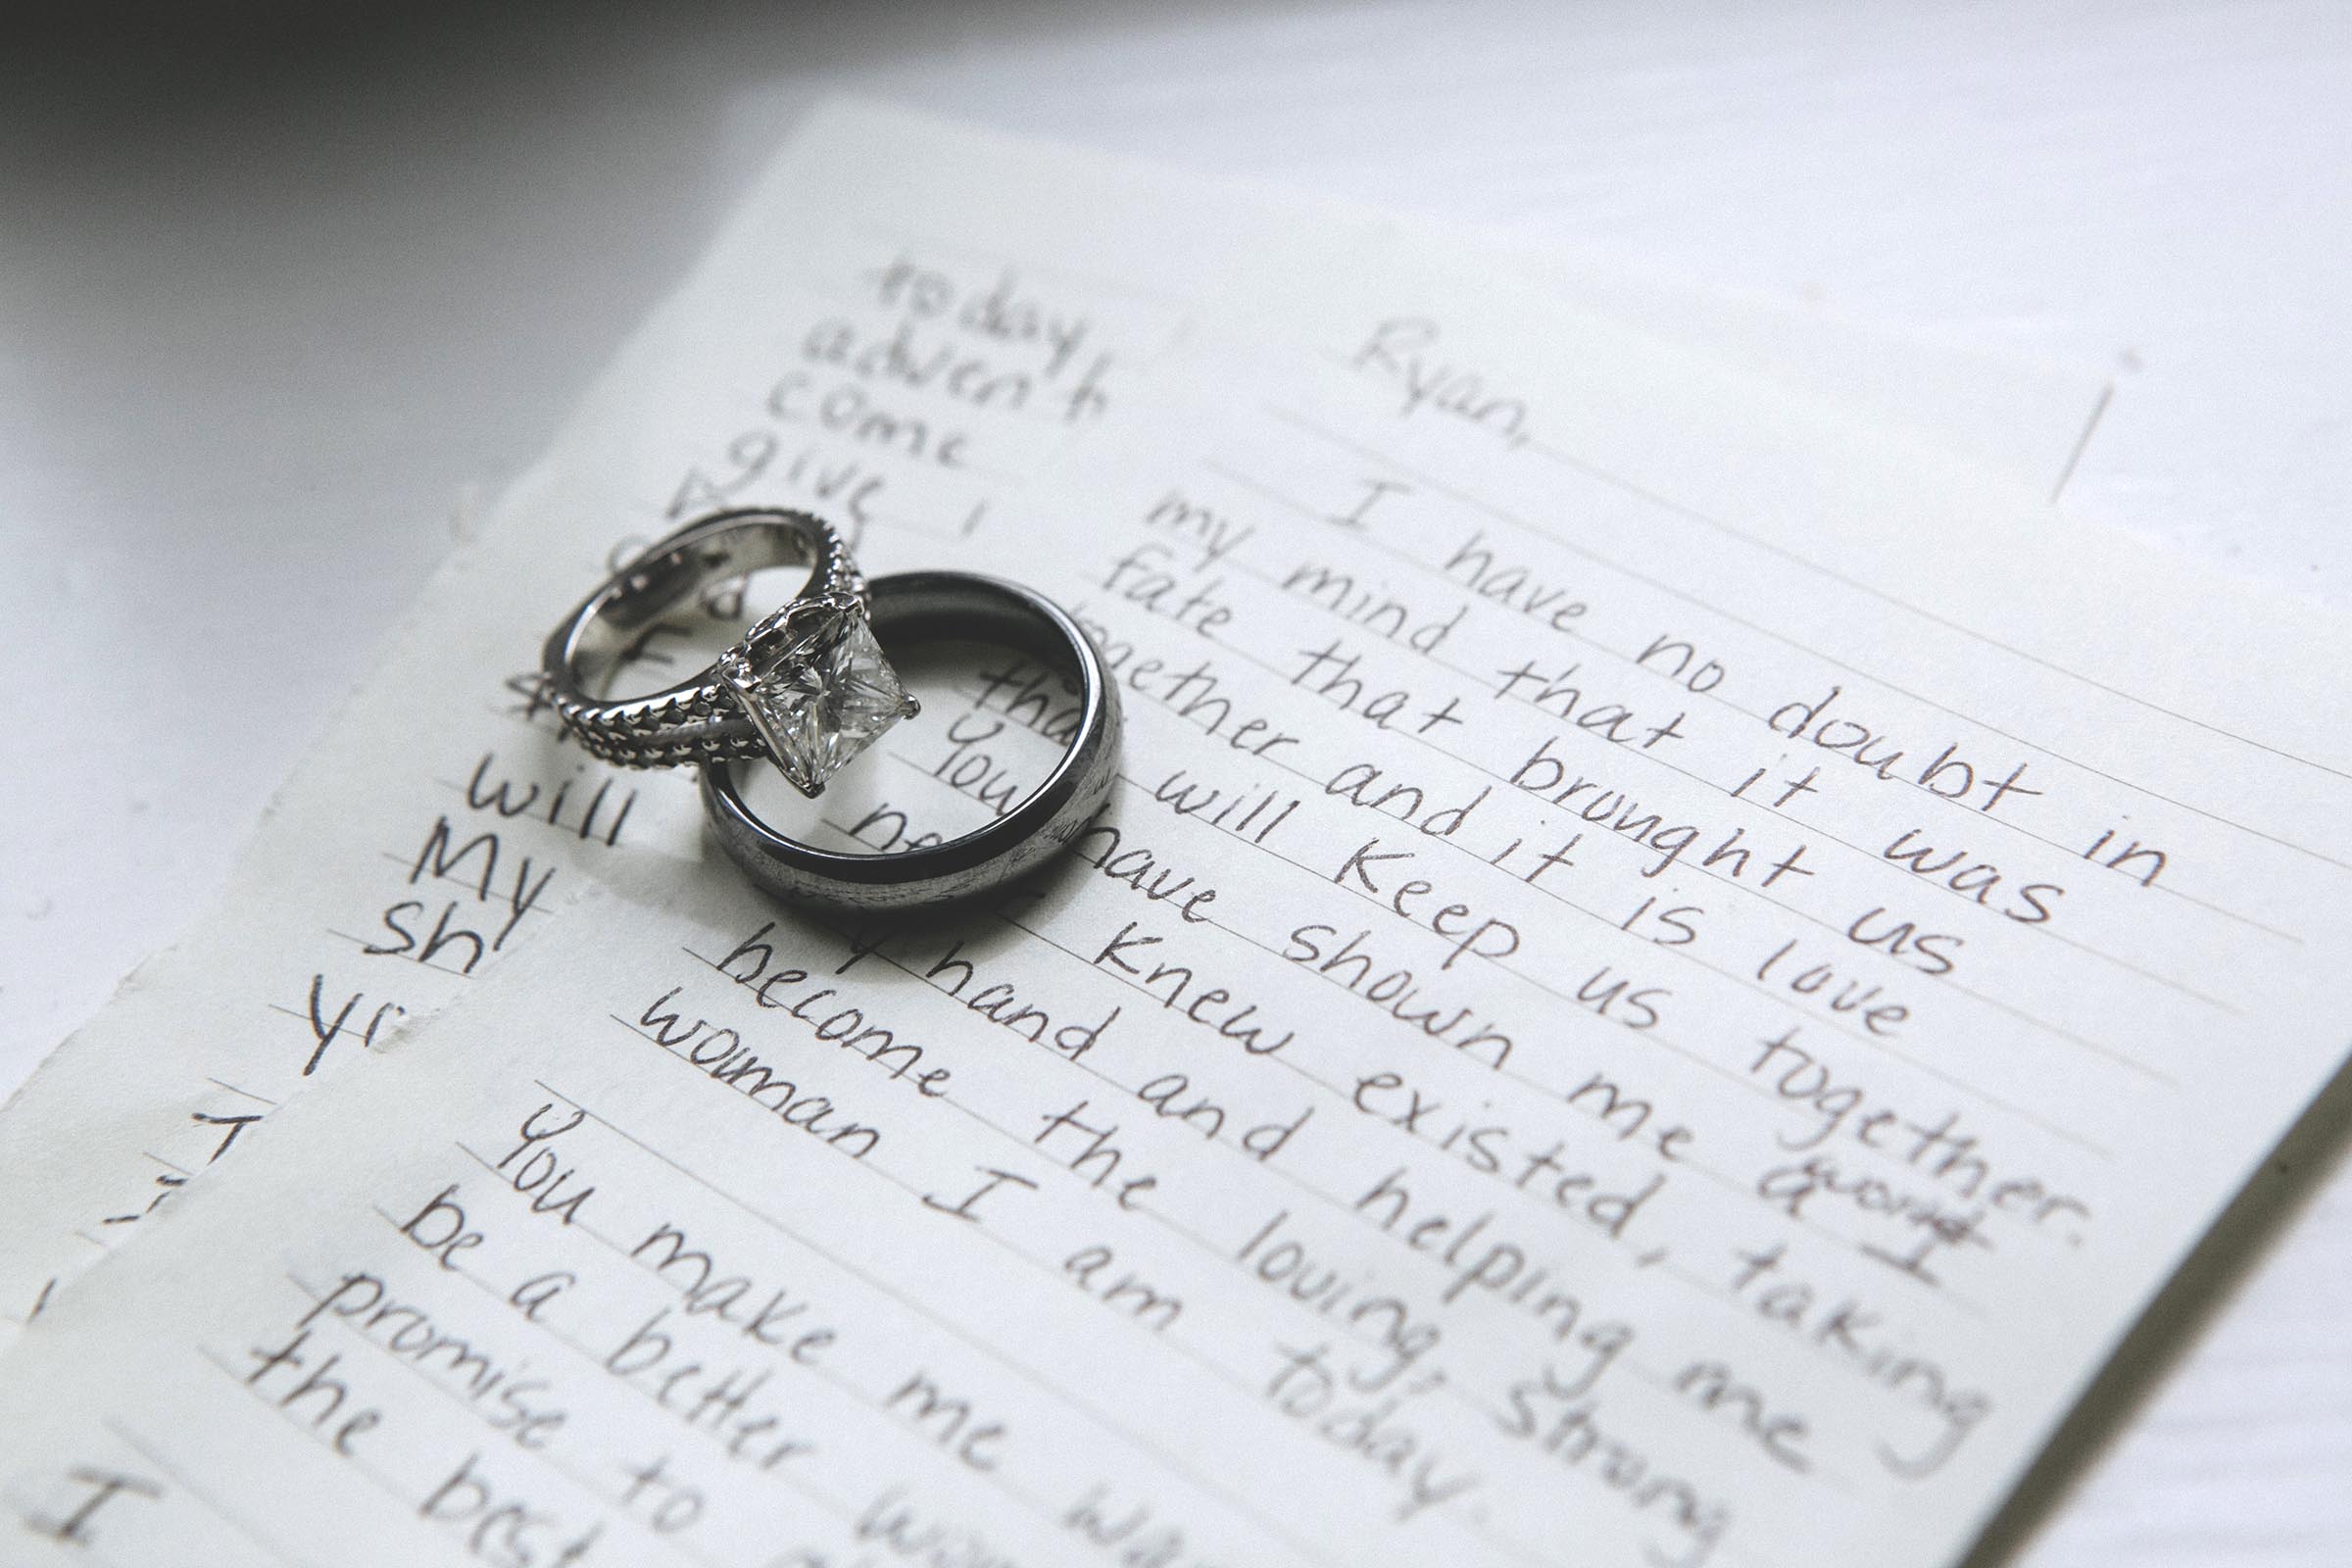 today,
advent
come
give
will
My
sh
Ryan,
I have no doubt in
my mind that it was
fate that brought us
together and it is love
tha will keep us together.
You have shown me a world I
ne knew existed, taking
y hand and helping me
become the loving, strong
woman I am today.
You make me wa
be a better wom
promise to
the best
I